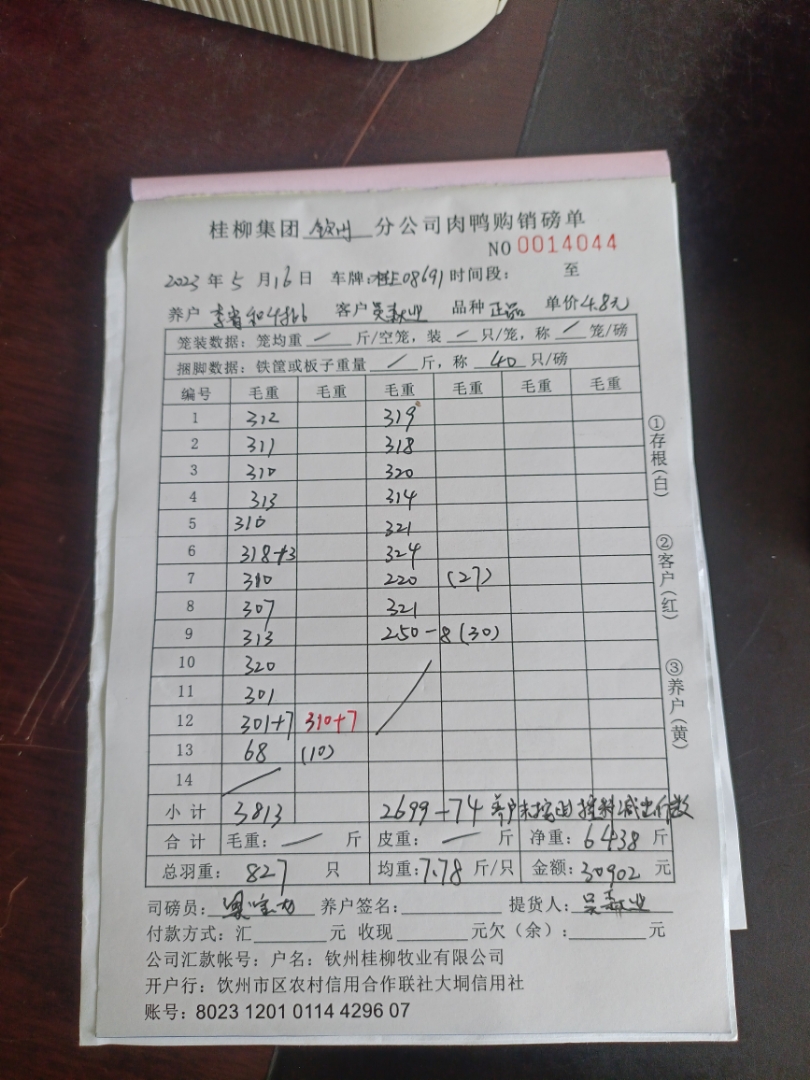 桂柳集团 钦州 分公司肉鸭购销磅单
NO 0014044
2023 年 5 月 16 日 车牌: 08691 时间段: 至
养户 客户 吴森业 品种 正品 单价 4.8元
笼装数据: 笼均重 / 斤/空笼, 装 / 只/笼, 称 / 笼/磅
捆脚数据: 铁筐或板子重量 / 斤, 称 40 只/磅
编号 毛重 毛重 毛重 毛重 毛重 毛重
1 312 319
2 311 318
3 310 320
4 313 314
5 310 321
6 318+3 324
7 310 220 (27)
8 307 321
9 313 250-8(30)
10 320
11 301
12 301+7 310+7
13 68 (10)
14
小计 3813 2699-74 养户未按 减出斤数
合计 毛重: — 斤 皮重: — 斤 净重: 6438 斤
总羽重: 827 只 均重: 7.78 斤/只 金额: 30902 元
司磅员: 养户签名: 提货人: 吴森业
付款方式: 汇 元 收现 元欠(余): 元
公司汇款帐号: 户名: 钦州桂柳牧业有限公司
开户行: 饮州市区农村信用合作联社大垌信用社
账号: 8023 1201 0114 4296 07
①存根(白)
②客户(红)
③养户(黄)